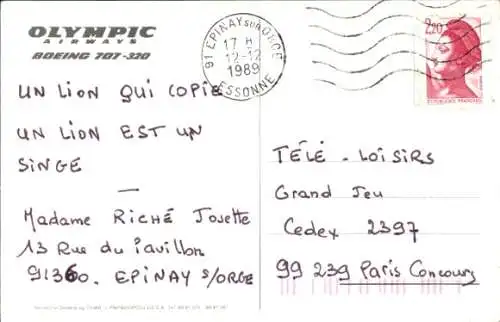 OLYMPIC
AIRWAYS
BOEING 707-320
UN LION QUI COPIE
UN LION EST UN
SINGE
—
Madame RICHÉ Josette
13 Rue du Pavillon
91360. EPINAY S/ORGE
91 EPINAY SUR ORGE
17 H
12-12
1989
ESSONNE
2,20
REPUBLIQUE FRANCAISE
TÉLÉ-LOISIRS
Grand Jeu
Cedex 2397
99 239 Paris Concours